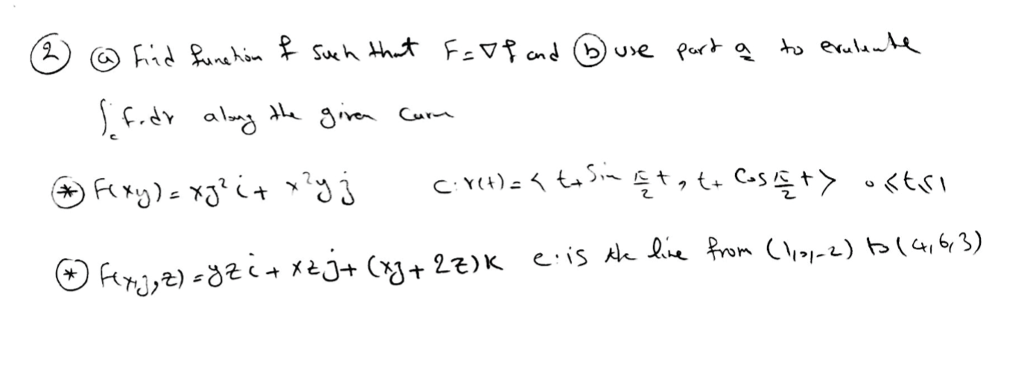 ② ⓐ Find function f such that F = ∇f and ⓑ use part a to evaluate
∫c F.dr along the given curve
⊛ F(xy) = xy² i + x²y j C: r(t) = < t + Sin π/2 t, t + Cos π/2 t > 0 ≤ t ≤ 1
⊛ F(x,y,z) = yz i + xz j + (xy + 2z) K c: is the line from (1,0,-2) to (4,6,3)